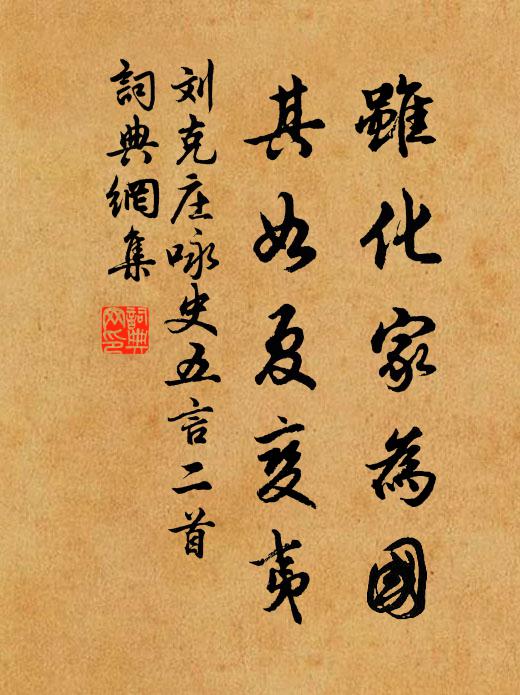 雖化家為國
其如夏变夷
刘克庄咏史五言二首
詞典網集
詞典網印